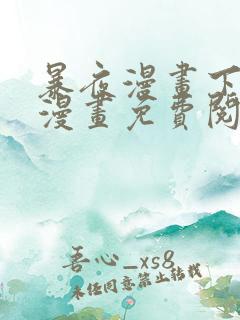 暴夜漫畫下
漫畫免費閱
吾心_xs8
未任同意禁止转载